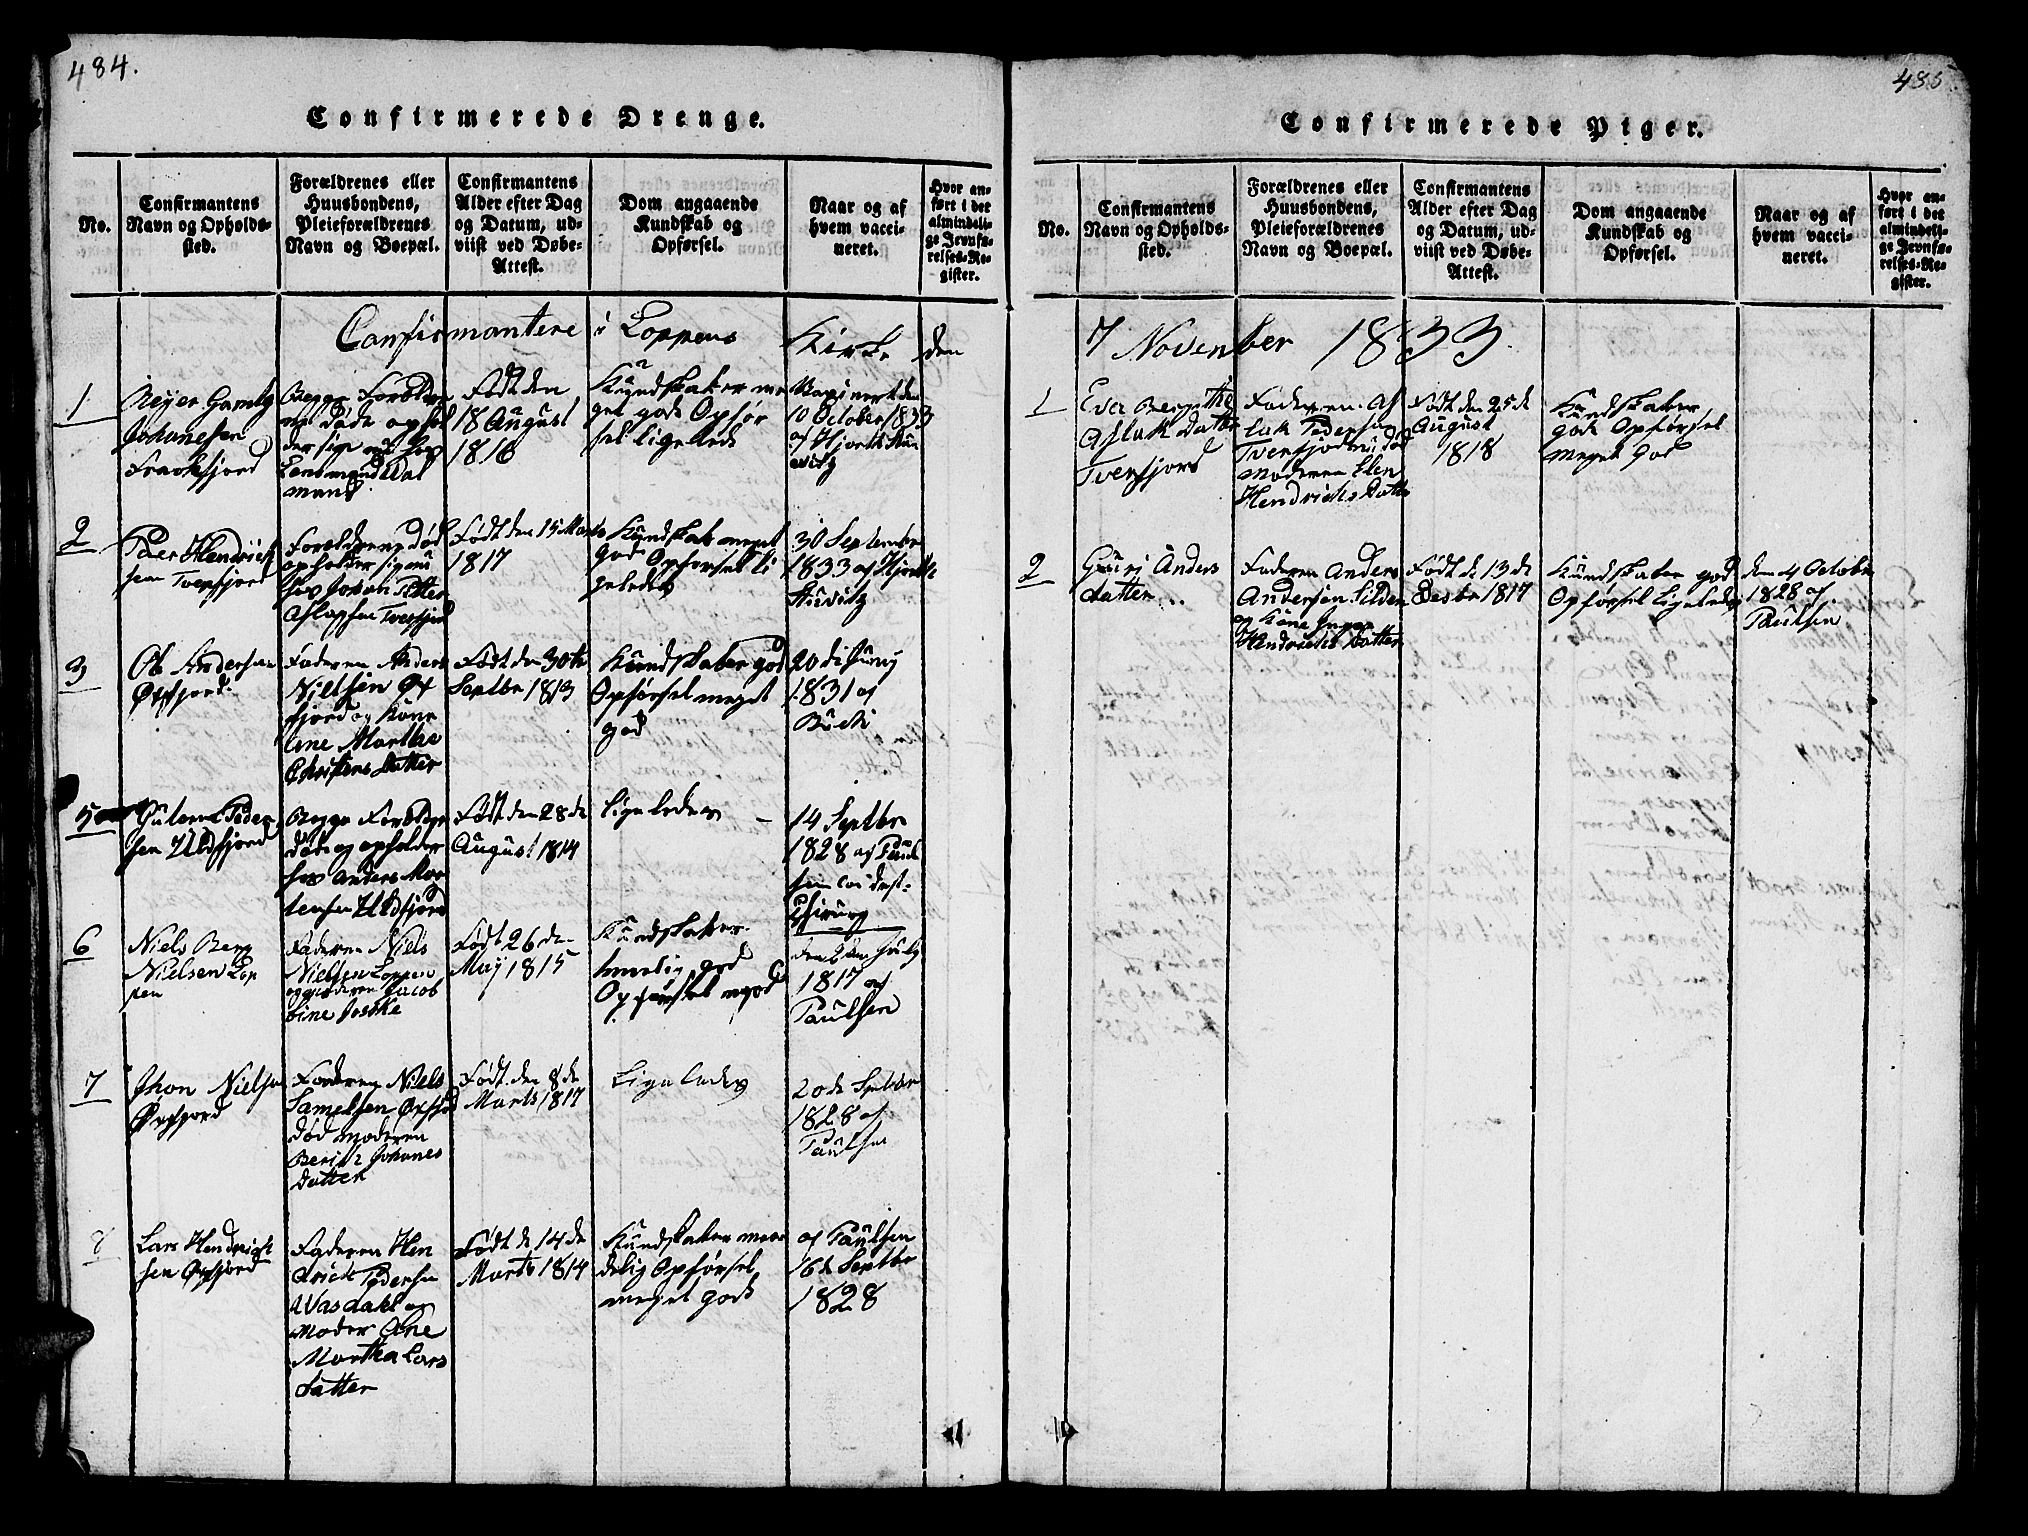 484.
Confirmerede Drenge.
No.
Confirmantens
Navn og Opholds-
sted.
Forældrenes eller
Huusbondens,
Pleieforældrenes
Navn og Boepæl.
Confirmantens
Alder efter Dag
og Datum, ud-
viist ved Døbe-
Attest.
Dom angaaende
Kundskab og
Opførsel.
Naar og af
hvem vacci-
neret.
Hvor an-
ført i det
almindeli-
ge Jevnfø-
relses-Re-
gister.
Confirmantere i Loppens Kirke den
1
Johanesen
Født den
18 August
1816
Kundskaber me
get gode Opfør
sel ligelede
10 October 1833
2
Peer Hendrich
sen Tverfjord
Foreldrene Død
opholder sig
hos Johan Petter
Aslaksen Tverfjord
Født den 15 Marts
1817
Kundskab meget
gode Opførsel li
geledes
30 September
1833 af
3
Ole Andersen
Øxfjord.
Faderen Anders
Nielsen Øx
fjord og Kone
Ane Marthe
Christens Datter
Født den 30te
Septbr 1813
Kundskaber god
Opførsel meget
god
20 de Juny
1831 af
5
Peder
sen Uldsfjord
Begge Foreldre
Døde og opholder
hos Anders Mor
tensen Uldsfjord
Født den 28 de
August 1814
ligeledes
14 Septbr
1828 af Paul
sen
Chirurg
6
Niels Berg
Nielsen Lop
pen
Faderen Niels
Nielsen Loppen
og Moderen Jacob
bine
Født 26 de
May 1815
Kundskaber
temelig god
Opførsel god
1817 af
Paulsen
7
Jhon Nielsen
Øxfjord
Faderen Niels
Samelsen Øxfjord
død moderen
Berith Johanes
Datter
Født den 8 de
Marts 1817
Ligeledes
20 de Septbr
1828 af
Paulsen
8
Lars Hendrich
sen Øxfjord
Faderen Hen
drich Pedersen
Wasdahl og
Moder Ane
Martha Lars
Datter
Født de 14 de
Marts 1814
Kundskaber
delig Opførsel
meget gode
af Paulsen
16 de Septbr
1828
485.
Confirmerede Piger.
No.
Confirmantens
Navn og Opholds-
sted.
Forældrenes eller
Huusbondens,
Pleieforældrenes
Navn og Boepæl.
Confirmantens
Alder efter Dag
og Datum, ud-
viist ved Døbe-
Attest.
Dom angaaende
Kundskab og
Opførsel.
Naar og af
hvem vacci-
neret.
Hvor an-
ført i det
almindeli-
ge Jevnfø-
relses-Re-
gister.
7 November 1833.
1
Eva Bergithe
Aslak Datter
Tverfjord
Faderen As
lak Pedersen
Tverfjord død
moderen Elen
Hendrichs Datter
Født den 25 de
August
1818
Kundskaber
gode Opførsel
meget god
2
Guri Anders
datter
Faderen Anders
Andersen Silden
og Kone Inger
Hendrichs Datter
Født de 13 de
Desbr 1817
Kundskaber god
Opførsel ligeledes
den 4 October
1828 af
Paulsen